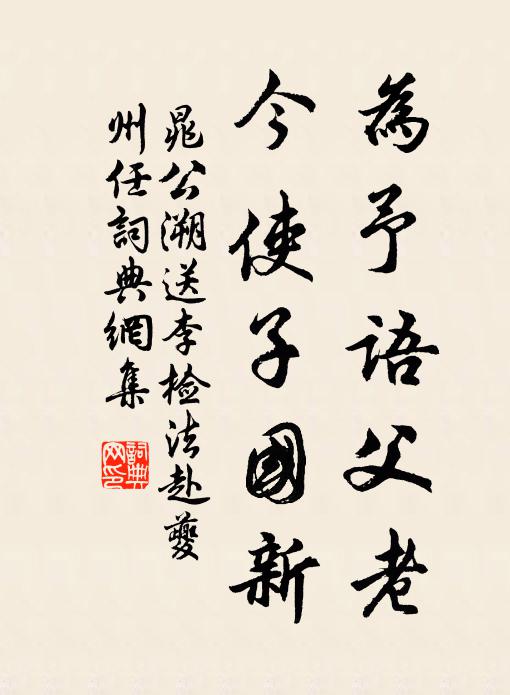 為予語父老
今使子國新
晁公溯送李檢法赴夔
州任詞典網集
詞典網印